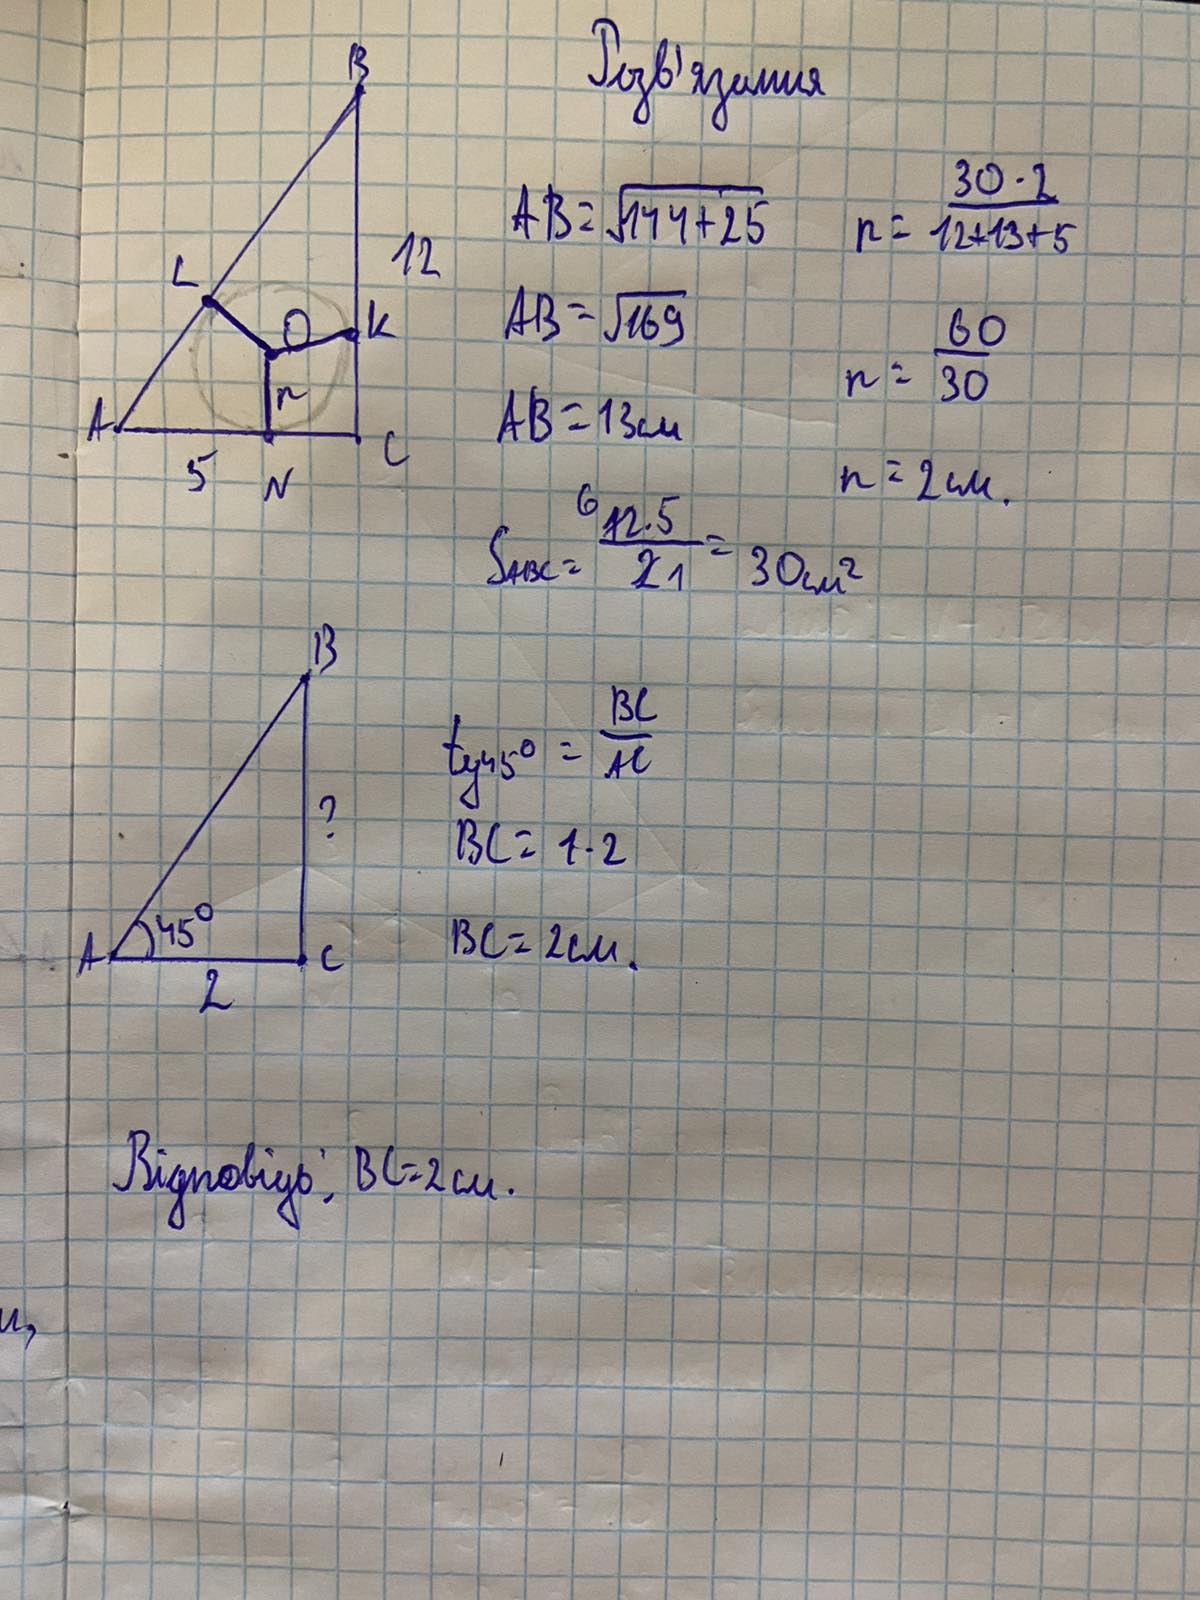 Розв'язання
B
12
L
O
K
r
A
C
5
N
AB = √144+25
AB = √169
AB = 13см
S ABC = 6 12·5 / 2 1 = 30см²
r = 30·2 / 12+13+5
r = 60 / 30
r = 2см.
B
?
45°
A
C
2
tg45° = BC / AC
BC = 1·2
BC = 2см.
Відповідь: BC=2см.
и,